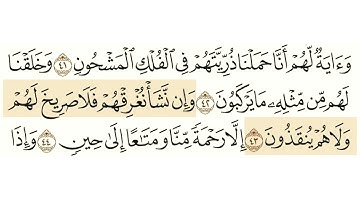 وَءَايَةٌ لَّهُمْ أَنَّا حَمَلْنَا ذُرِّيَّتَهُمْ فِي الْفُلْكِ الْمَشْحُونِ ٤١ وَخَلَقْنَا
لَهُم مِّن مِّثْلِهِۦ مَا يَرْكَبُونَ ٤٢ وَإِن نَّشَأْ نُغْرِقْهُمْ فَلَا صَرِيخَ لَهُمْ
وَلَا هُمْ يُنقَذُونَ ٤٣ إِلَّا رَحْمَةً مِّنَّا وَمَتَاعًا إِلَىٰ حِينٍ ٤٤ وَإِذَا